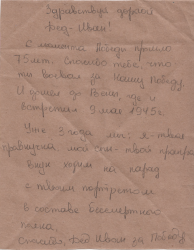 Здравствуй дорогой
Дед-Иван!
С момента Победы прошло
75 лет. Спасибо тебе, что
ты воевал за нашу Победу.
И дошел до Вены, где и
встретил 9 мая 1945 г.
Уже 3 года мы: я-твой
правнук, мой
ходим на парад
с твоим портретом
в составе Бессмертного
полка.
Спасибо, Дед Иван за Победу!